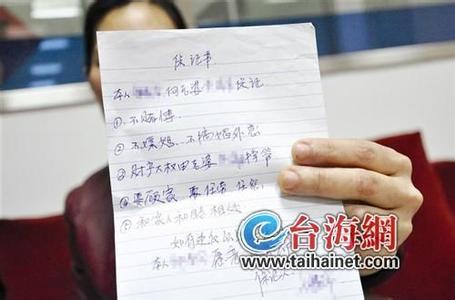 保证书
本人 向老婆 保证
①不赌博.
②不嫖娼.不搞婚外恋
③财产大权由老婆 掌管
④要顾家.
⑤和家人和睦相处
如有违反
本人
台海網
www.taihainet.com